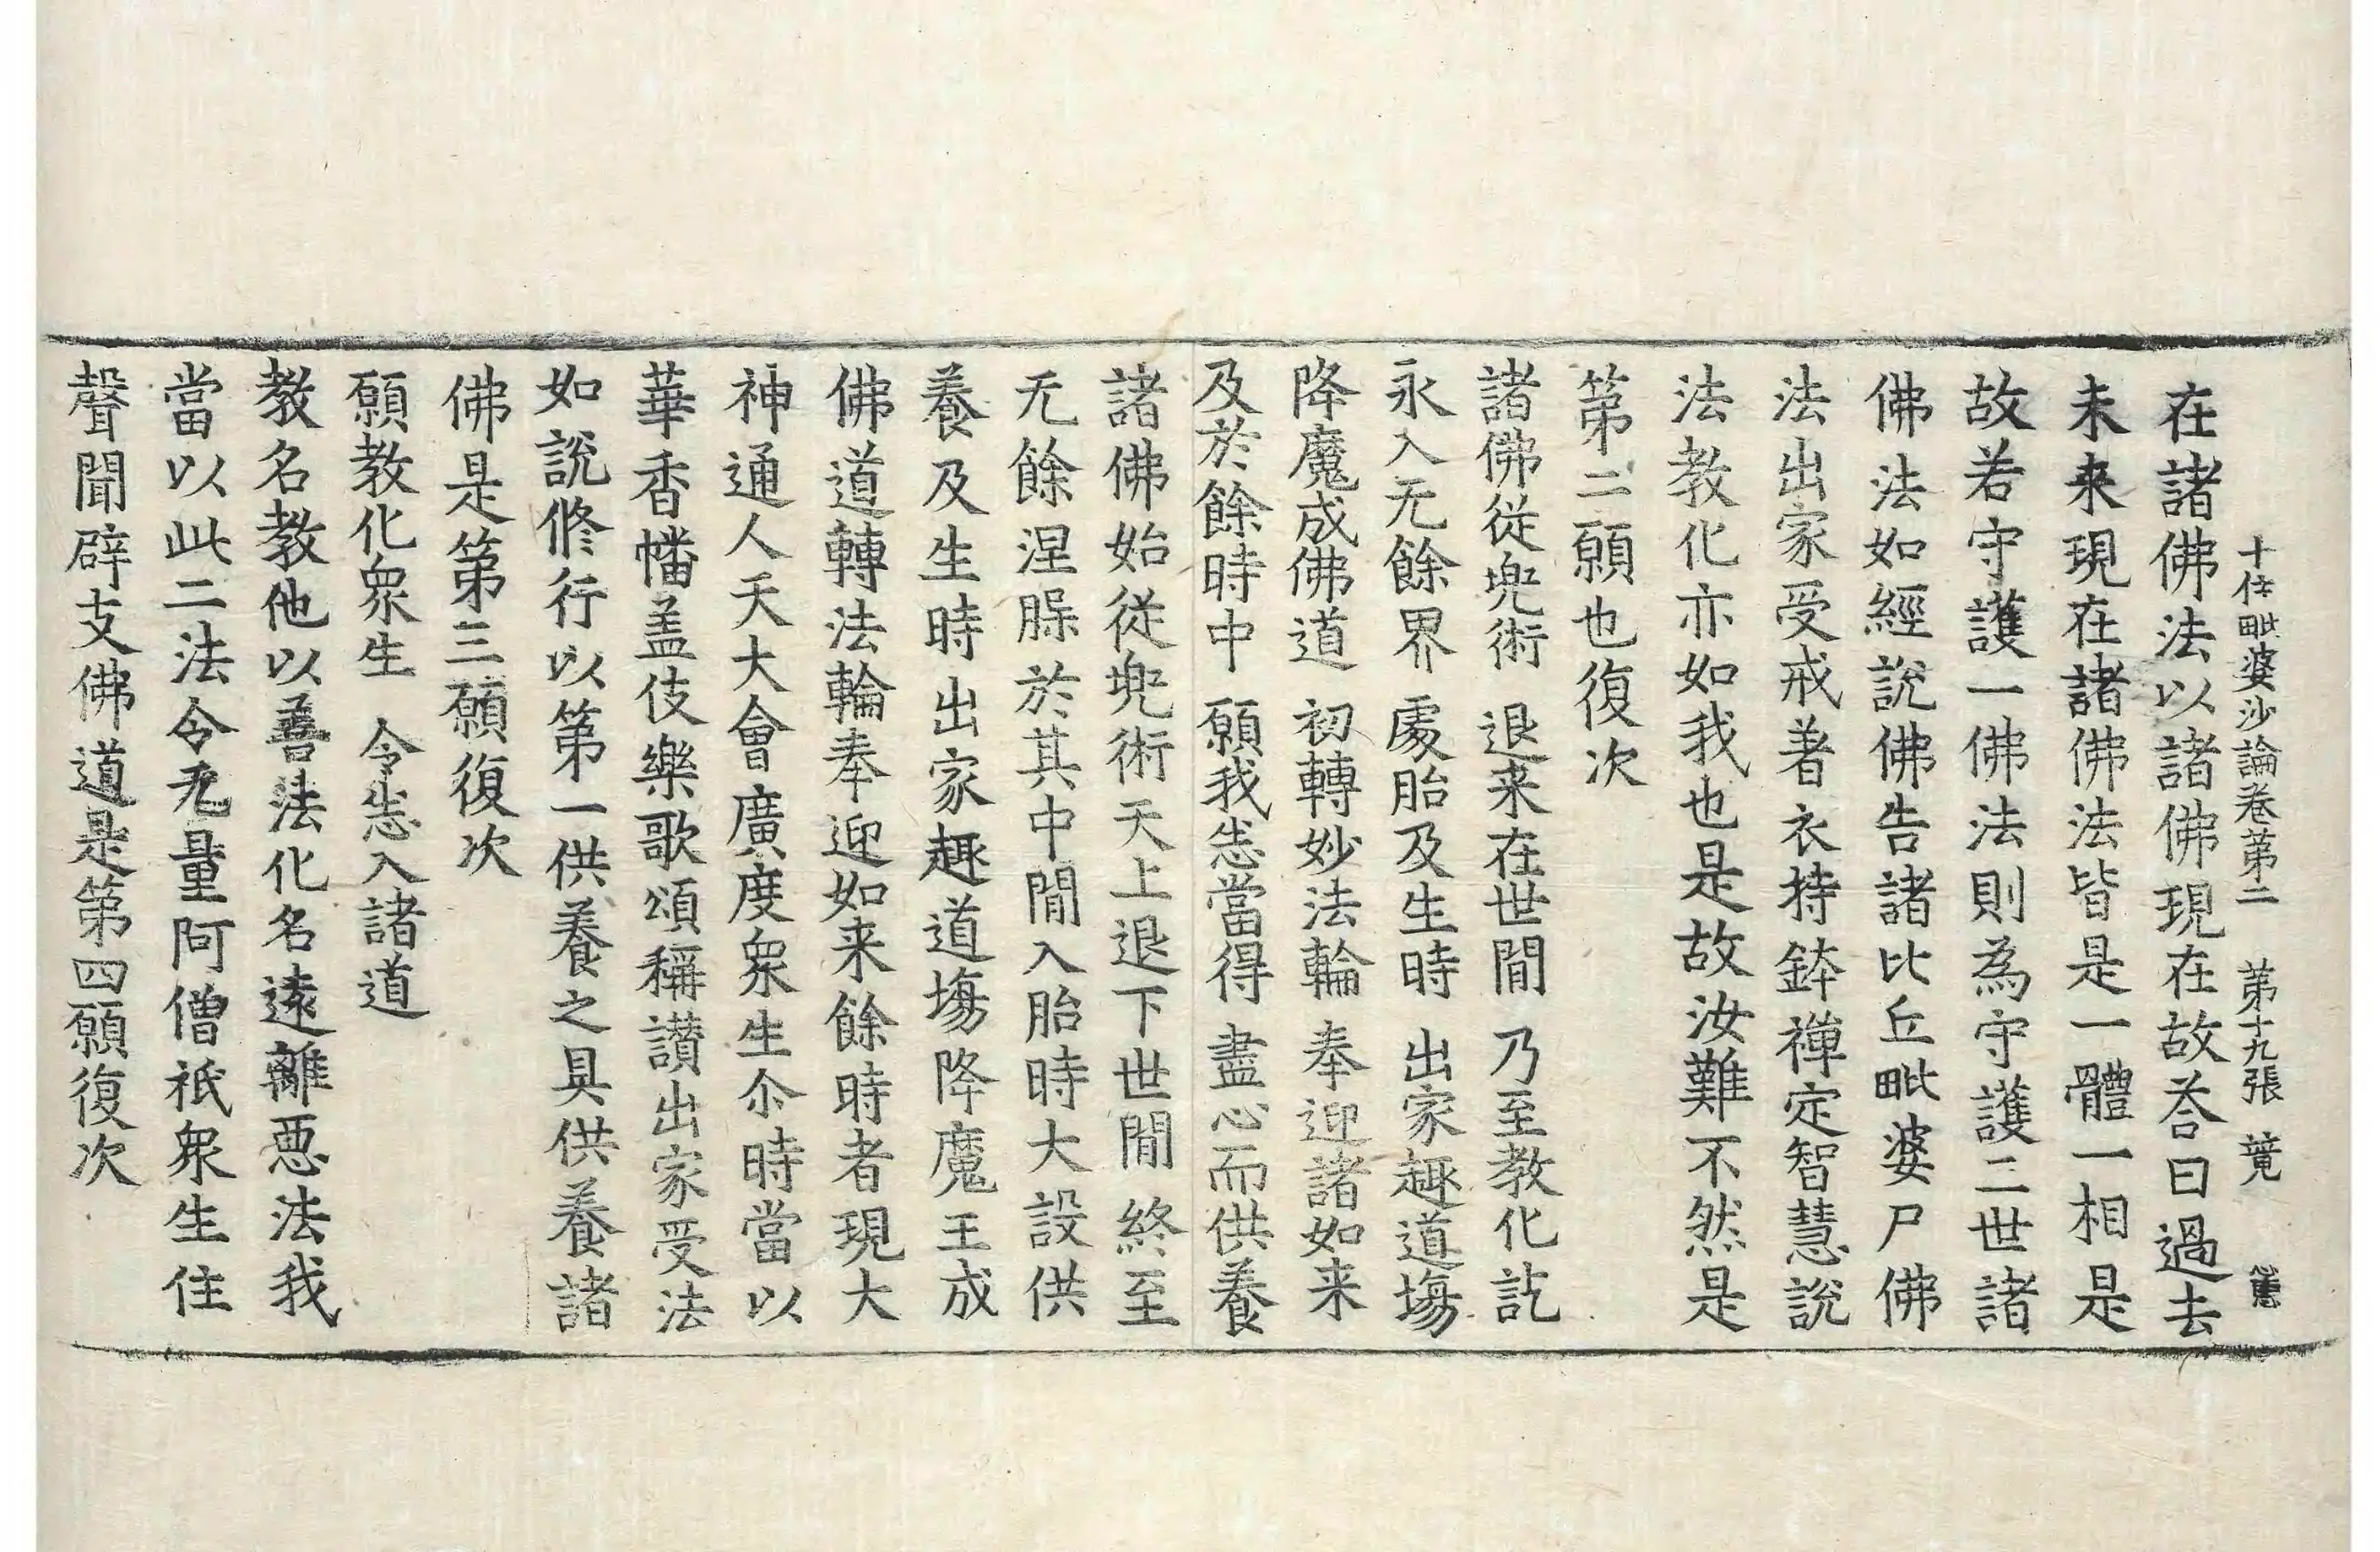 十住毗婆沙論卷第二　第十九張　竟
在諸佛法以諸佛現在故荅曰過去
未来現在諸佛法皆是一體一相是
故若守護一佛法則為守護三世諸
佛法如經說佛告諸比丘毗婆尸佛
法出家受戒著衣持鉢禪定智慧說
法教化亦如我也是故汝難不然是
第二願也復次
諸佛從兜術　退来在世閒　乃至教化訖
永入无餘界　處胎及生時　出家趣道場
降魔成佛道　初轉妙法輪　奉迎諸如来
及於餘時中　願我悉當得　盡心而供養
諸佛始從兜術天上退下世閒終至
无餘涅腬於其中閒入胎時大設供
養及生時出家趣道場降魔王成
佛道轉法輪奉迎如来餘時者現大
神通人天大會廣度衆生尒時當以
華香幡盖伎樂歌頌稱讃出家受法
如說修行以第一供養之具供養諸
佛是第三願復次
願教化衆生　令悉入諸道
教名教他以善法化名遠離惡法我
當以此二法令无量阿僧祇衆生住
聲聞辟支佛道是第四願復次